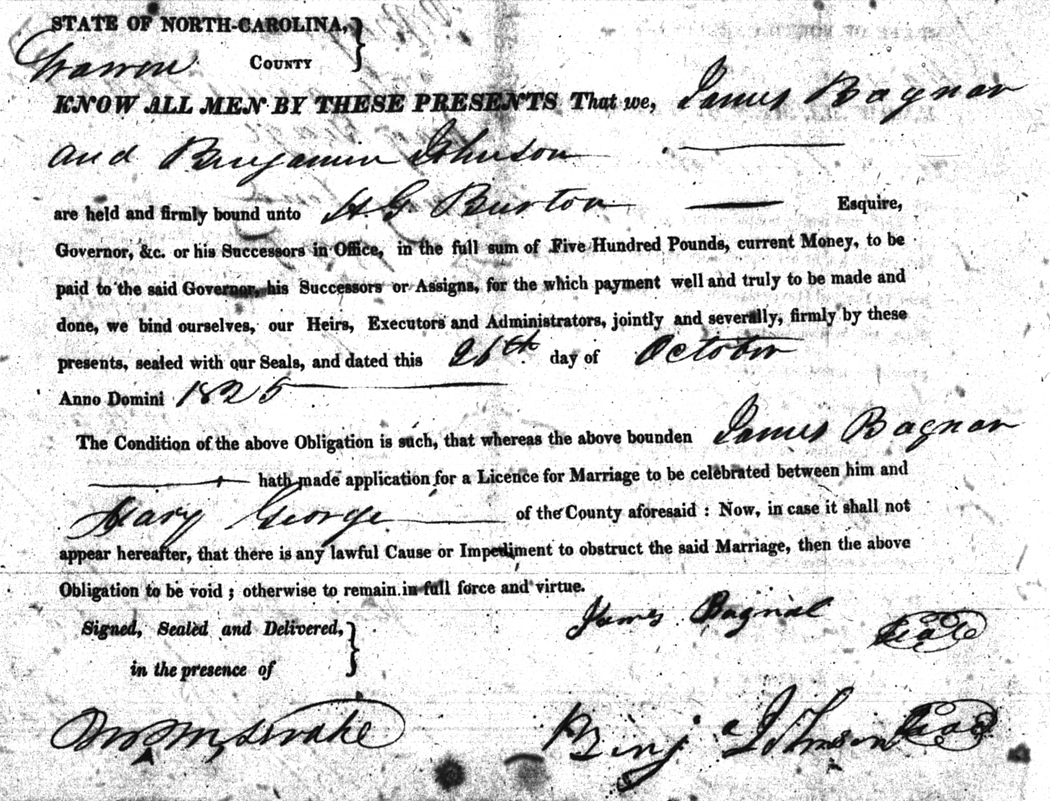 STATE OF NORTH-CAROLINA,
Warren COUNTY
KNOW ALL MEN BY THESE PRESENTS That we, James Bagnar
and Benjamin Johnson
are held and firmly bound unto H G Burton Esquire,
Governor, &c. or his Successors in Office, in the full sum of Five Hundred Pounds, current Money, to be
paid to the said Governor, his Successors or Assigns, for the which payment well and truly to be made and
done, we bind ourselves, our Heirs, Executors and Administrators, jointly and severally, firmly by these
presents, sealed with our Seals, and dated this 26th day of October
Anno Domini 1825
The Condition of the above Obligation is such, that whereas the above bounden James Bagnar
hath made application for a Licence for Marriage to be celebrated between him and
Mary George of the County aforesaid : Now, in case it shall not
appear hereafter, that there is any lawful Cause or Impediment to obstruct the said Marriage, then the above
Obligation to be void ; otherwise to remain in full force and virtue.
Signed, Sealed and Delivered,
in the presence of
James Bagnal
Benj Johnson
Drake